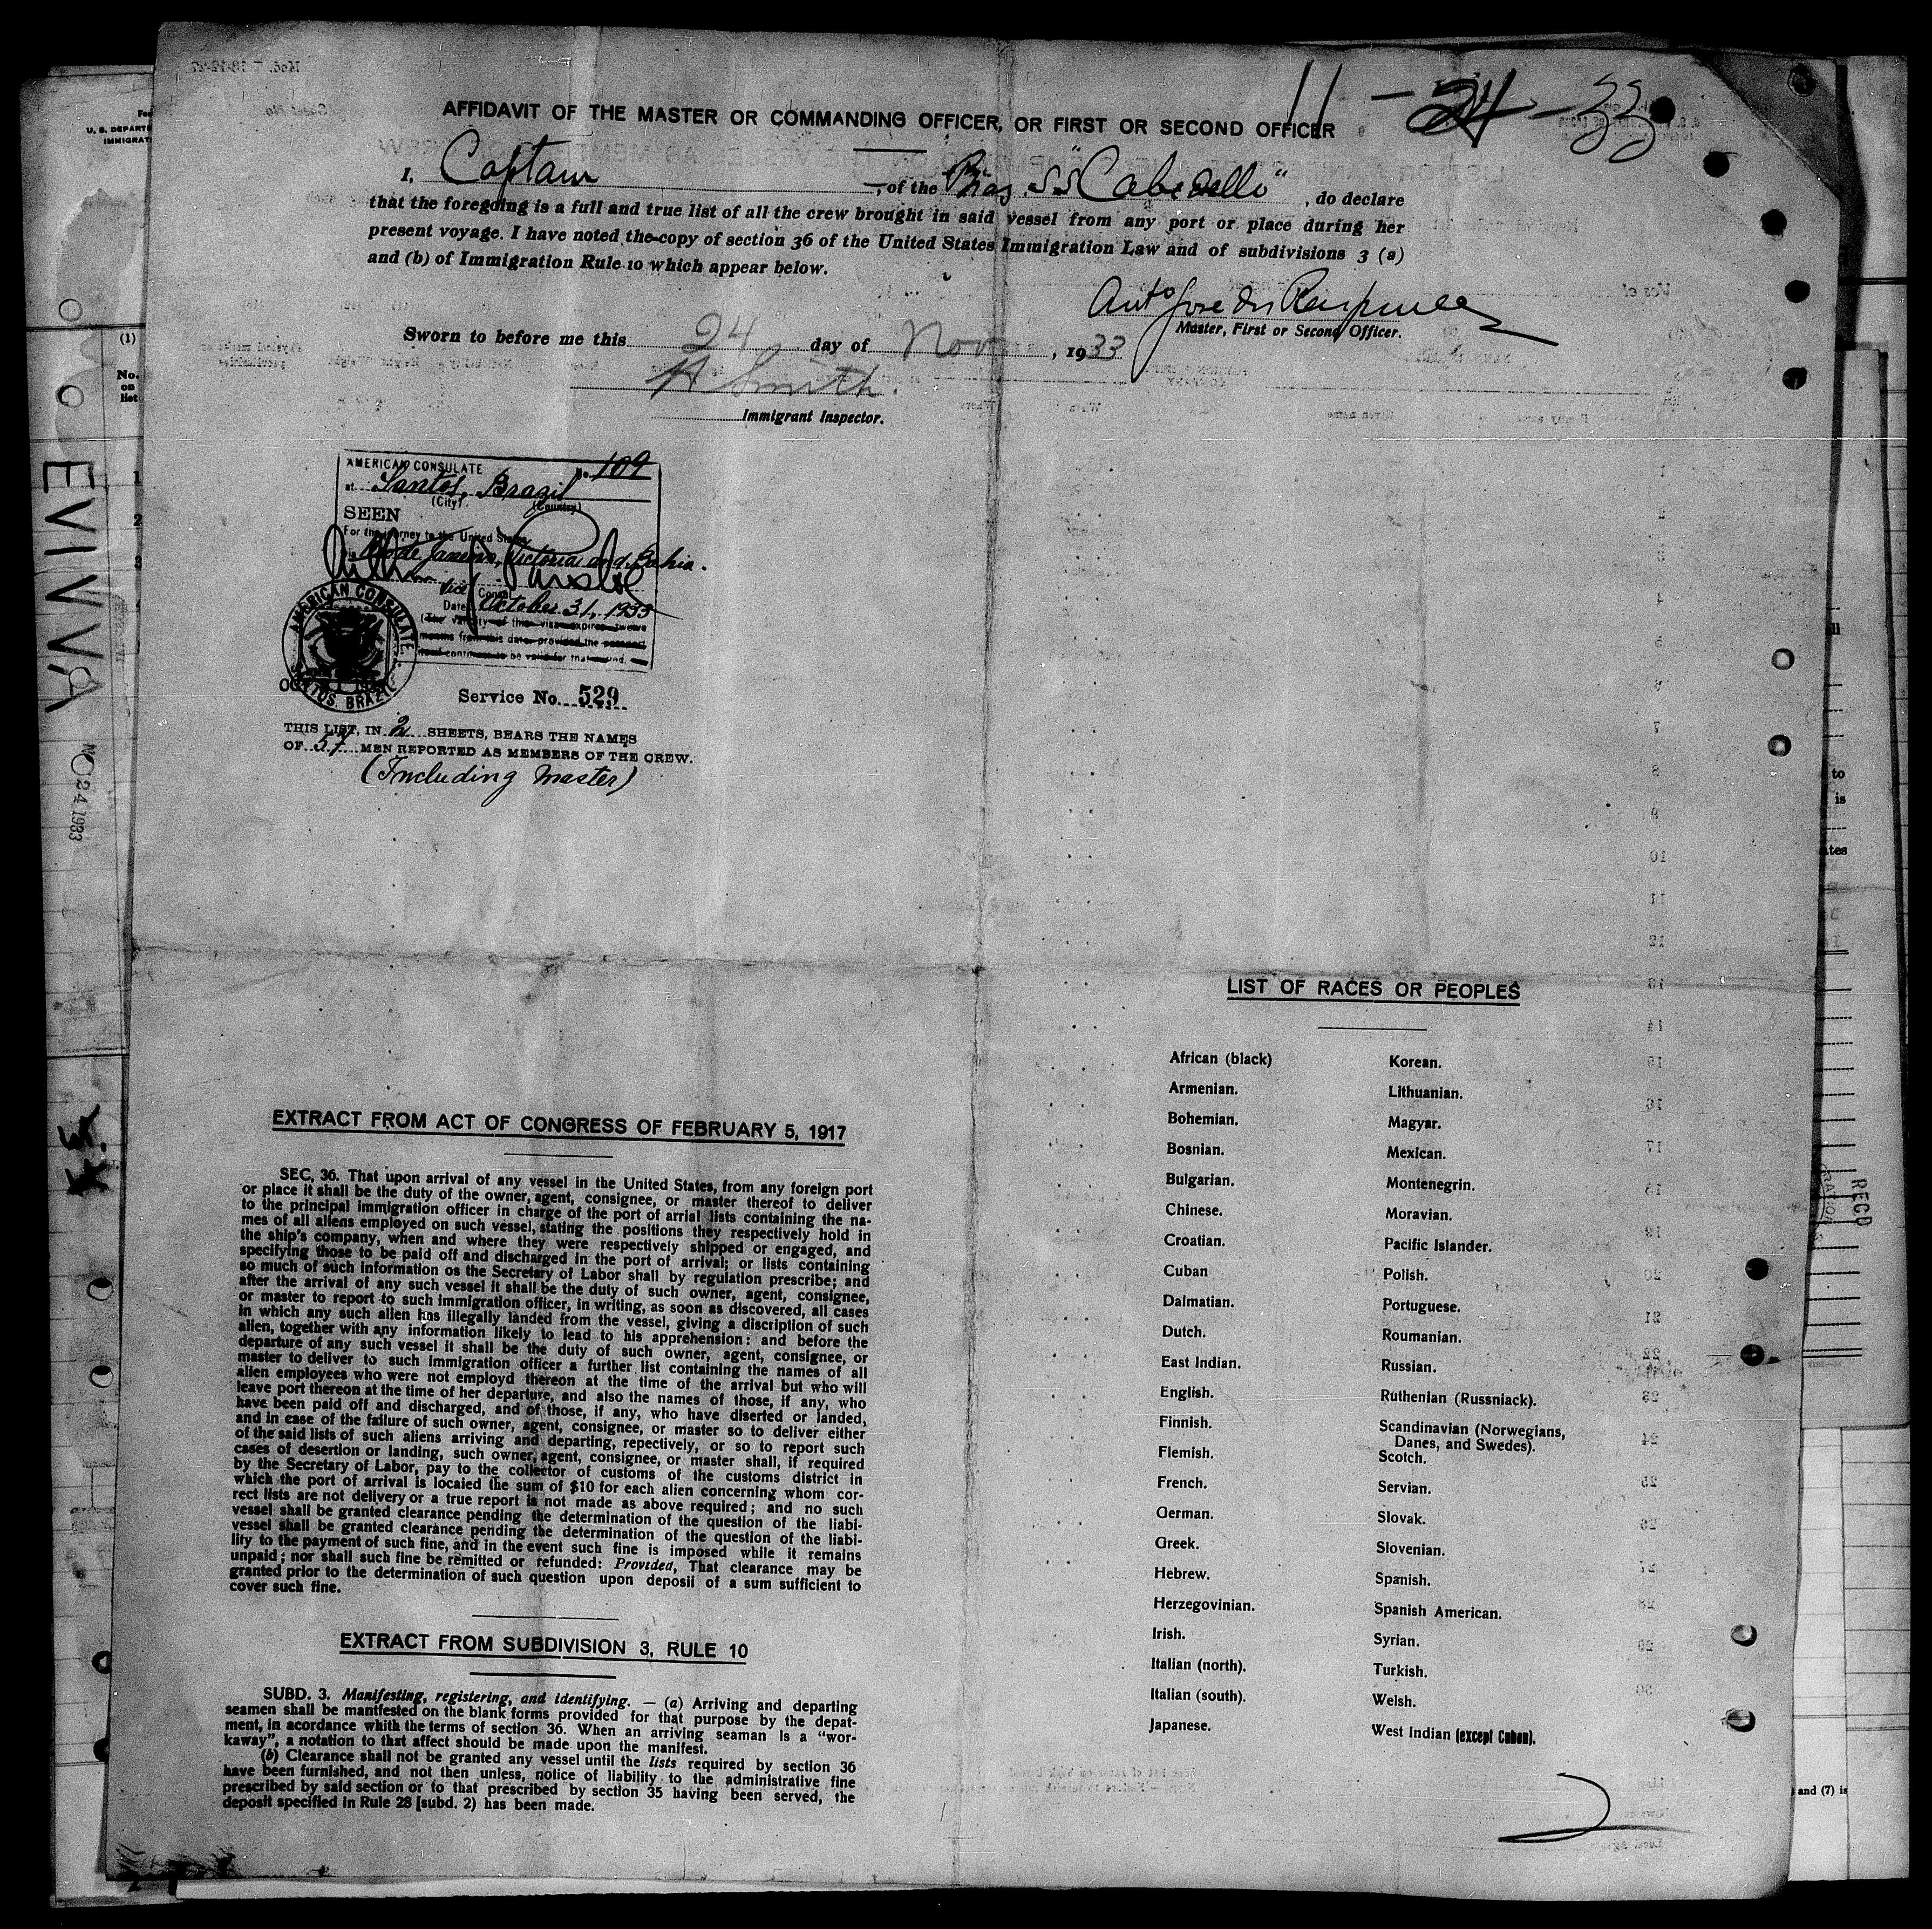 11 - 24 - 33
AFFIDAVIT OF THE MASTER OR COMMANDING OFFICER, OR FIRST OR SECOND OFFICER
I, Captain, of the Braz. SS "Cabedello", do declare
that the foregoing is a full and true list of all the crew brought in said vessel from any port or place during her
present voyage. I have noted the copy of section 36 of the United States Immigration Law and of subdivisions 3 (a)
and (b) of Immigration Rule 10 which appear below.
Master, First or Second Officer.
Sworn to before me this 24 day of Nov, 1933
H Smith
Immigrant Inspector.
AMERICAN CONSULATE No. 109
at Santos, Brazil
(City) (Country)
SEEN
For the journey to the United States
via Rio de Janeiro, Victoria and Bahia.
Vice Consul
Date October 31, 1933
(The validity of this visa expires twelve
months from this date, provided the passport
itself continues to be valid for that period.
AMERICAN CONSULATE
SANTOS, BRAZIL
Service No. 529
THIS LIST, IN 2 SHEETS, BEARS THE NAMES
OF 57 MEN REPORTED AS MEMBERS OF THE CREW.
(Including Master)
EXTRACT FROM ACT OF CONGRESS OF FEBRUARY 5, 1917
SEC, 36. That upon arrival of any vessel in the United States, from any foreign port
or place it shall be the duty of the owner, agent, consignee, or master thereof to deliver
to the principal immigration officer in charge of the port of arrial lists containing the na-
mes of all aliens employed on such vessel, stating the positions they respectively hold in
the ship's company, when and where they were respectively shipped or engaged, and
specifying those to be paid off and discharged in the port of arrival; or lists containing
so much of such information os the Secretary of Labor shall by regulation prescribe; and
after the arrival of any such vessel it shall be the duty of such owner, agent, consignee,
or master to report to such immigration officer, in writing, as soon as discovered, all cases
in which any such alien has illegally landed from the vessel, giving a discription of such
allen, together with any information likely to lead to his apprehension: and before the
departure of any such vessel it shall be the duty of such owner, agent, consignee, or
master to deliver to such immigration officer a further list containing the names of all
alien employees who were not employd thereon at the time of the arrival but who will
leave port thereon at the time of her departure, and also the names of those, if any, who
have been paid off and discharged, and of those, if any, who have diserted or landed,
and in case of the failure of such owner, agent, consignee, or master so to deliver either
of the said lists of such aliens arriving and departing, repectively, or so to report such
cases of desertion or landing, such owner, agent, consignee, or master shall, if required
by the Secretary of Labor, pay to the collector of customs of the customs district in
which the port of arrival is locaied the sum of $10 for each alien concerning whom cor-
rect lists are not delivery or a true report is not made as above required; and no such
vessel shall be granted clearance pending the determination of the question of the liabi-
vessel shall be granted clearance pending the determination of the question of the liabi-
lity to the payment of such fine, and in the event such fine is imposed while it remains
unpaid; nor shall such fine be remitted or refunded: Provided, That clearance may be
granted prior to the determination of such question upon deposil of a sum sufficient to
cover such fine.
EXTRACT FROM SUBDIVISION 3, RULE 10
SUBD. 3. Manifesting, registering, and identifying. — (a) Arriving and departing
seamen shall be mantfested on the blank forms provided for that purpose by the depat-
ment, in acordance whith the terms of section 36. When an arriving seaman is a "wor-
kaway", a notation to that affect should be made upon the manifest.
(b) Clearance shall not be granted any vessel until the lists required by section 36
have been furnished, and not then unless, notice of liability to the administrative fine
prescribed by said section or to that prescribed by section 35 having been served, the
deposit specified in Rule 28 [subd. 2) has been made.
LIST OF RACES OR PEOPLES
African (black)
Armenian.
Bohemian.
Bosnian.
Bulgarian.
Chinese.
Croatian.
Cuban
Dalmatian.
Dutch.
East Indian.
English.
Finnish.
Flemish.
French.
German.
Greek.
Hebrew.
Herzegovinian.
Irish.
Italian (north).
Italian (south).
Japanese.
Korean.
Lithuanian.
Magyar.
Mexican.
Montenegrin.
Moravian.
Pacific Islander.
Polish.
Portuguese.
Roumanian.
Russian.
Ruthenian (Russniack).
Scandinavian (Norwegians,
Danes, and Swedes).
Scotch.
Servian.
Slovak.
Slovenian.
Spanish.
Spanish American.
Syrian.
Turkish.
Welsh.
West Indian (except Cuban).
U. S. DEPART
IMMIGRAT
(1)
No.
on
list
1
2
3
EVIVVA
NO 24 1933
to
is
ates
RECO
and (7) is